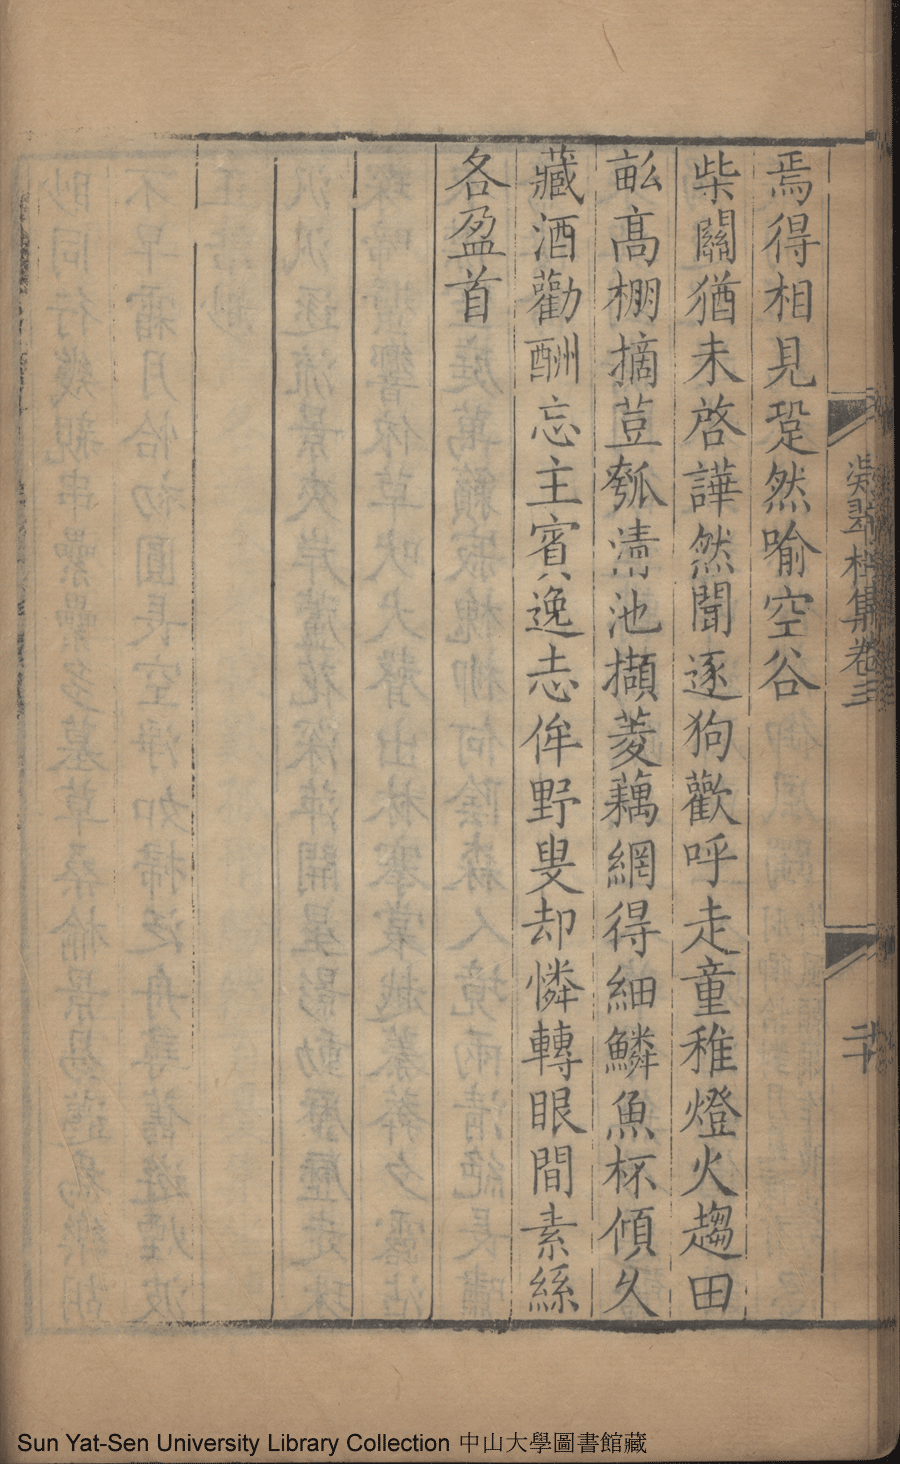 焉得相見跫然喻空谷
柴關猶未啓譁然聞逐狗歡呼走童稚燈火趨田
畝高棚摘荳瓠清池擷菱藕網得細鱗魚杯傾久
藏酒勸酬忘主賓逸志侔野叟却憐轉眼間素絲
各盈首
凝翠集卷三
二十
Sun Yat-Sen University Library Collection 中山大學圖書館藏